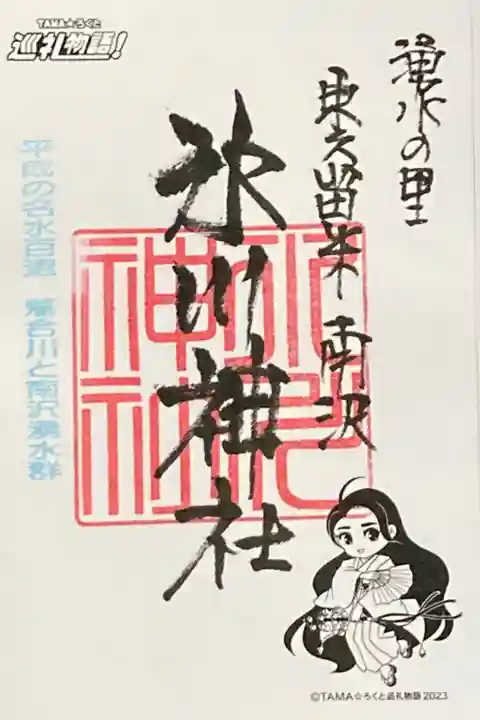 TAMA☆ろくと
巡礼物語!
湧水の里
東久留米 南沢
氷川神社
平成の名水百選 落合川と南沢湧水群
©TAMA☆ろくと巡礼物語 2023